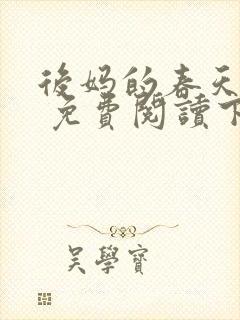 後妈的春天
免費閱讀下
吳學寶